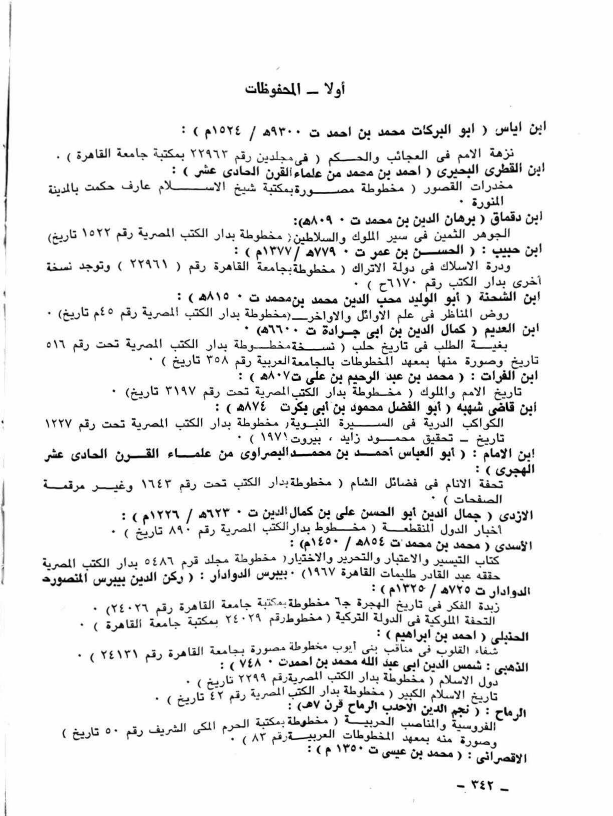 أولا ــ المحفوظات
ابن اياس ( ابو البركات محمد بن احمد ت ٩٣٠٠ھ / ١٥٢٤م ) :
نزهة الامم فى العجائب والحكم ( فى مجلدين رقم ٢٢٩٦٣ بمكتبة جامعة القاهرة ) ٠
ابن القطرى البحيرى ( احمد بن محمد من علماء القرن الحادى عشر ) :
مخدرات القصور ( مخطوطة مصورة بمكتبة شيخ الاسلام عارف حكمت بالمدينة
المنورة ٠
ابن دقماق ( برهان الدين بن محمد ت ٠ ٨٠٩ھ):
الجوهر الثمين فى سير الملوك والسلاطين( مخطوطة بدار الكتب المصرية رقم ١٥٢٢ تاريخ)
ابن حبيب : ( الحسن بن عمر ت ٠ ٧٧٩ھ /١٣٧٧م ) :
ودرة الاسلاك فى دولة الاتراك ( مخطوطة بجامعة القاهرة رقم ( ٢٢٩٦١ ) وتوجد نسخة
أخرى بدار الكتب رقم ٦١٧٠ح ) ٠
ابن الشحنة ( أبو الوليد محب الدين محمد بن محمد ت ٠ ٨١٥ھ ) :
روض المناظر فى علم الاوائل والاواخر (مخطوطة بدار الكتب المصرية رقم ٤٥م تاريخ) ٠
ابن العديم ( كمال الدين بن ابى جرادة ت ٦٦٠٠ھ) :
بغية الطلب فى تاريخ حلب ( نسخة مخطوطة بدار الكتب المصرية تحت رقم ٥١٦
تاريخ وصورة منها بمعهد المخطوطات بالجامعة العربية رقم ٣٥٨ تاريخ ) ٠
ابن الفرات : ( محمد بن عبد الرحيم بن على ت ٨٠٧ھ ) :
تاريخ الامم والملوك ( مخطوطة بدار الكتب المصرية تحت رقم ٣١٩٧ تاريخ) ٠
ابن قاضى شهبه ( أبو الفضل محمود بن أبى بكرت ٨٧٤ھ ) :
الكواكب الدرية فى السيرة النبوية( مخطوطة بدار الكتب المصرية تحت رقم ١٢٢٧
تاريخ ــ تحقيق محمود زايد ، بيروت ١٩٧١ ) ٠
ابن الامام : ( أبو العباس أحمد بن محمد البصراوى من علماء القرن الحادى عشر
الهجرى ) :
تحفة الانام فى فضائل الشام ( مخطوطة بدار الكتب تحت رقم ١٦٤٣ وغير مرقمة
الصفحات ) ٠
الازدى ( جمال الدين أبو الحسن على بن كمال الدين ت ٠ ٦٢٣ھ / ١٢٢٦م ) :
أخبار الدول المنقطعة ( مخطوط بدار الكتب المصرية رقم ٨٩٠ تاريخ ) ٠
الأسدى ( محمد بن محمد ت ٨٥٤ھ / ١٤٥٠م) :
كتاب التيسير والاعتبار والتحرير والاختيار( مخطوطة مجلد قرم ٥٤٨٦ بدار الكتب المصرية
حققه عبد القادر طليمات القاهرة ١٩٦٧) ٠ بيبرس الدوادار : ( ركن الدين بيبرس المنصورى
الدوادار ت ٧٢٥ھ / ١٣٢٥م ) :
زبدة الفكر فى تاريخ الهجرة ج٦ مخطوطة بمكتبة جامعة القاهرة رقم ٢٤٠٢٦) ٠
التحفة الملوكية فى الدولة التركية ( مخطوط رقم ٢٤٠٢٩ بمكتبة جامعة القاهرة ) ٠
الحنبلى ( احمد بن ابراهيم ) :
شفاء القلوب فى مناقب بنى أيوب مخطوطة مصورة بجامعة القاهرة رقم ٢٤١٣١ ) ٠
الذهبى : شمس الدين أبى عبد الله محمد بن احمد ت ٠ ٧٤٨ ) :
دول الاسلام ( مخطوطة بدار الكتب المصرية رقم ٢٢٩٩ تاريخ ) ٠
تاريخ الاسلام الكبير ( مخطوطة بدار الكتب المصرية رقم ٤٢ تاريخ ) ٠
الرماح : ( نجم الدين الأحدب الرماح قرن ٧ھ) :
الفروسية والمناصب الحربية ( مخطوطة بمكتبة الحرم المكى الشريف رقم ٥٠ تاريخ )
وصورة منه بمعهد المخطوطات العربية رقم ٨٢ ) ٠
الاقصرائى : ( محمد بن عيسى ت ١٣٥٠ م ) :
ــ ٣٤٢ ــ